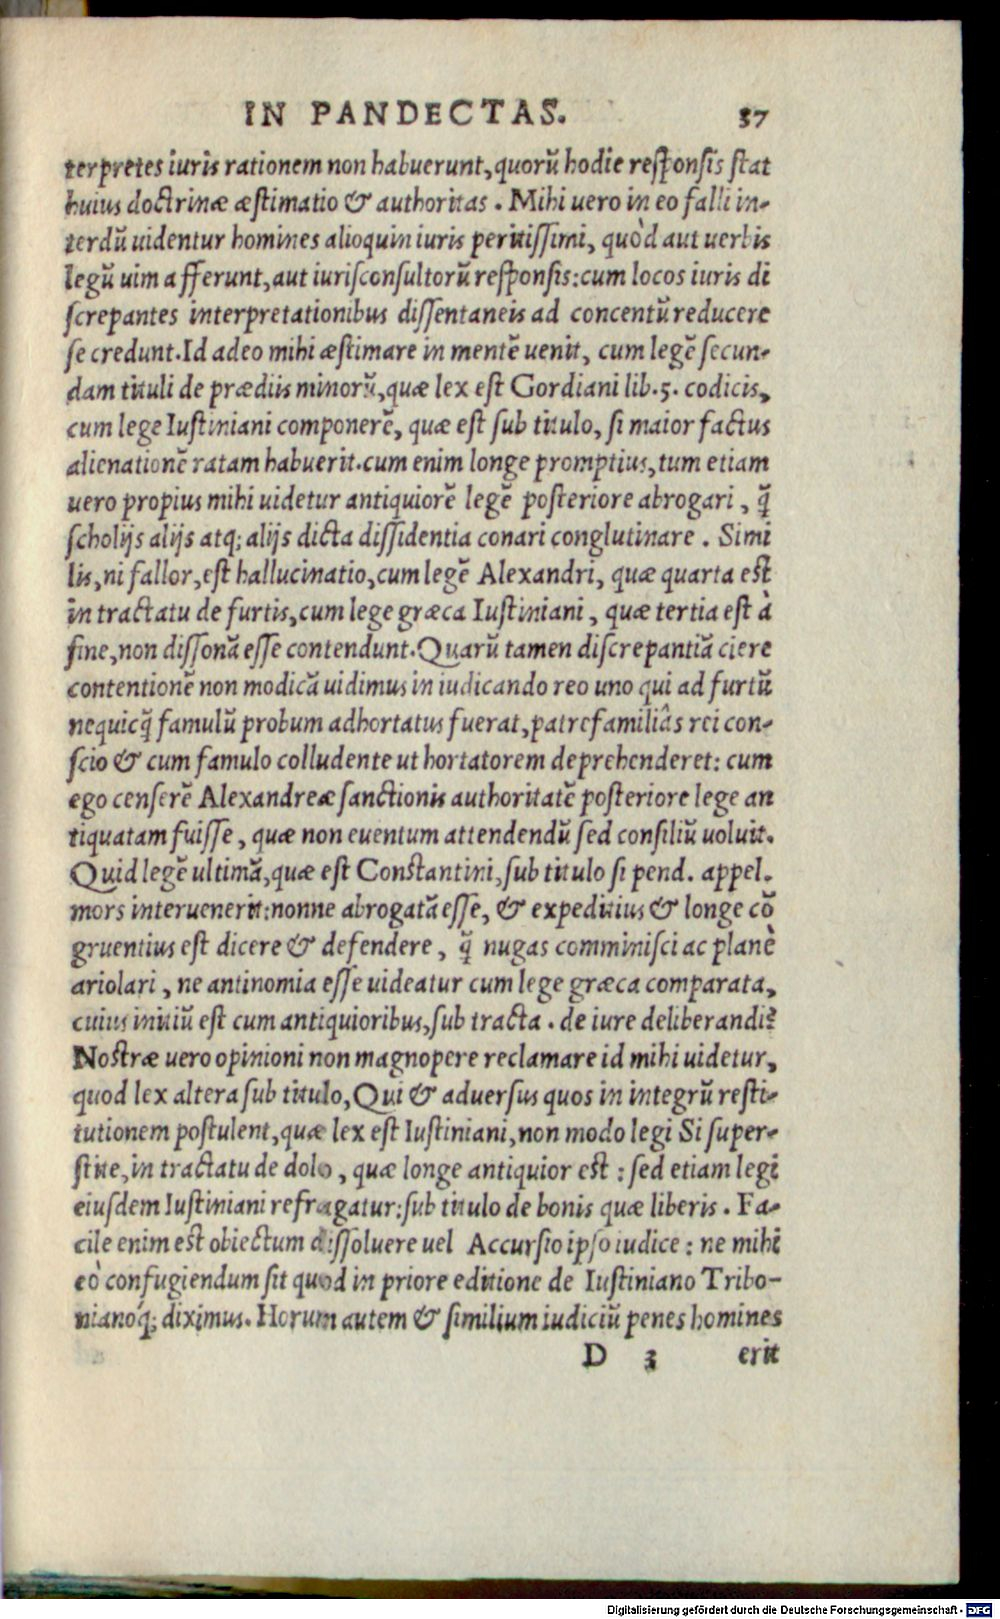 IN PANDECTAS. 37
terpretes iuris rationem non habuerunt, quorũ hodie responsis stat
huius doctrinæ æstimatio & authoritas. Mihi uero in eo falli in-
terdũ uidentur homines alioquin iuris peritissimi, quòd aut uerbis
legũ uim afferunt, aut iurisconsultorũ responsis: cum locos iuris di
screpantes interpretationibus dissentaneis ad concentũ reducere
se credunt. Id adeo mihi æstimare in mentẽ uenit, cum legẽ secun-
dam tituli de prædiis minorũ, quæ lex est Gordiani lib. 5. codicis,
cum lege Iustiniani componerẽ, quæ est sub titulo, si maior factus
alienationẽ ratam habuerit. cum enim longe promptius, tum etiam
uero propius mihi uidetur antiquiorẽ legẽ posteriore abrogari, q̃
scholijs alijs atq; alijs dicta dissidentia conari conglutinare. Simi
lis, ni fallor, est hallucinatio, cum legẽ Alexandri, quæ quarta est
in tractatu de furtis, cum lege græca Iustiniani, quæ tertia est à
fine, non dissonã esse contendunt. Quarũ tamen discrepantiã ciere
contentionẽ non modicã uidimus in iudicando reo uno qui ad furtũ
nequicq̃ famulũ probum adhortatus fuerat, patrefamiliâs rei con-
scio & cum famulo colludente ut hortatorem deprehenderet: cum
ego censerẽ Alexandreæ sanctionis authoritatẽ posteriore lege an
tiquatam fuisse, quæ non euentum attendendũ sed consiliũ uoluit.
Quid legẽ ultimã, quæ est Constantini, sub titulo si pend. appel.
mors interuenerit: nonne abrogatã esse, & expeditius & longe cõ
gruentius est dicere & defendere, q̃ nugas comminisci ac planè
ariolari, ne antinomia esse uideatur cum lege græca comparata,
cuius initiũ est cum antiquioribus, sub tracta. de iure deliberandi?
Nostræ uero opinioni non magnopere reclamare id mihi uidetur,
quod lex altera sub titulo, Qui & aduersus quos in integrũ resti-
tutionem postulent, quæ lex est Iustiniani, non modo legi Si super-
stite, in tractatu de dolo, quæ longe antiquior est: sed etiam legi
eiusdem Iustiniani refragatur: sub titulo de bonis quæ liberis. Fa-
cile enim est obiectum dissoluere uel Accursio ipso iudice: ne mihi
eò confugiendum sit quod in priore editione de Iustiniano Tribo-
nianóq; diximus. Horum autem & similium iudiciũ penes homines
D 3 erit
Digitalisierung gefördert durch die Deutsche Forschungsgemeinschaft - DFG